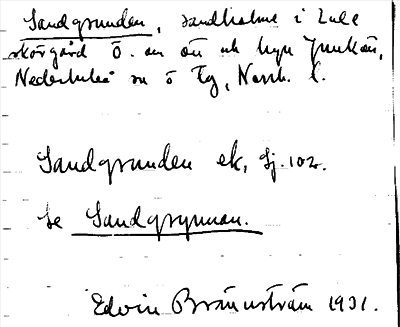 Sandgrunden, sandholme i Lule
skärgård Ö. om ön och byn Junkön,
Nederluleå sn o tg, Norrb. l.
Sandgrunden ek, Sj. 102.
Se Sandgrynnan.
Edvin Brännström 1931.